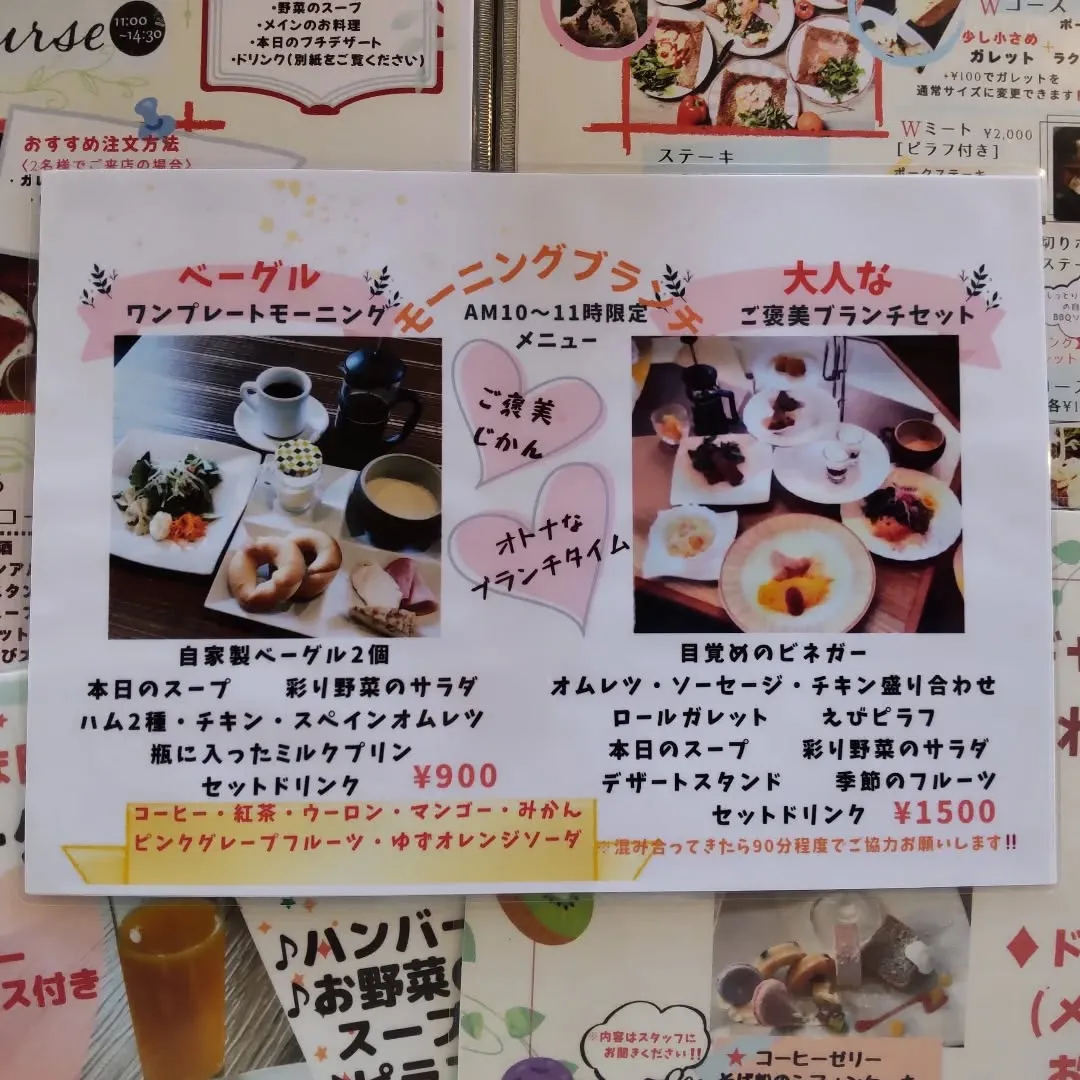 urse
11:00
~14:30
・野菜のスープ
・メインのお料理
・本日のプチデザート
・ドリンク(別紙をご覧ください)
おすすめ注文方法
〈2名様でご来店の場合〉
Wコース
少し小さめ
ガレット
+¥100でガレットを
通常サイズに変更できます
Wミート ¥2,000
[ピラフ付き]
ポークステーキ
ステーキ
モーニングブランチ
AM10～11時限定
メニュー
ベーグル
ワンプレートモーニング
ご褒美
じかん
オトナな
ブランチタイム
大人な
ご褒美ブランチセット
自家製ベーグル2個
本日のスープ 彩り野菜のサラダ
ハム2種・チキン・スペインオムレツ
瓶に入ったミルクプリン
セットドリンク ¥900
コーヒー・紅茶・ウーロン・マンゴー・みかん
ピンクグレープフルーツ・ゆずオレンジソーダ
目覚めのビネガー
オムレツ・ソーセージ・チキン盛り合わせ
ロールガレット えびピラフ
本日のスープ 彩り野菜のサラダ
デザートスタンド 季節のフルーツ
セットドリンク ¥1500
※混み合ってきたら90分程度でご協力お願いします!!
ス付き
♪ハンバー
♪お野菜の
スープ
♪ピラフ
※内容はスタッフに
お聞きください!!
★ コーヒーゼリー
♦ド
(メ